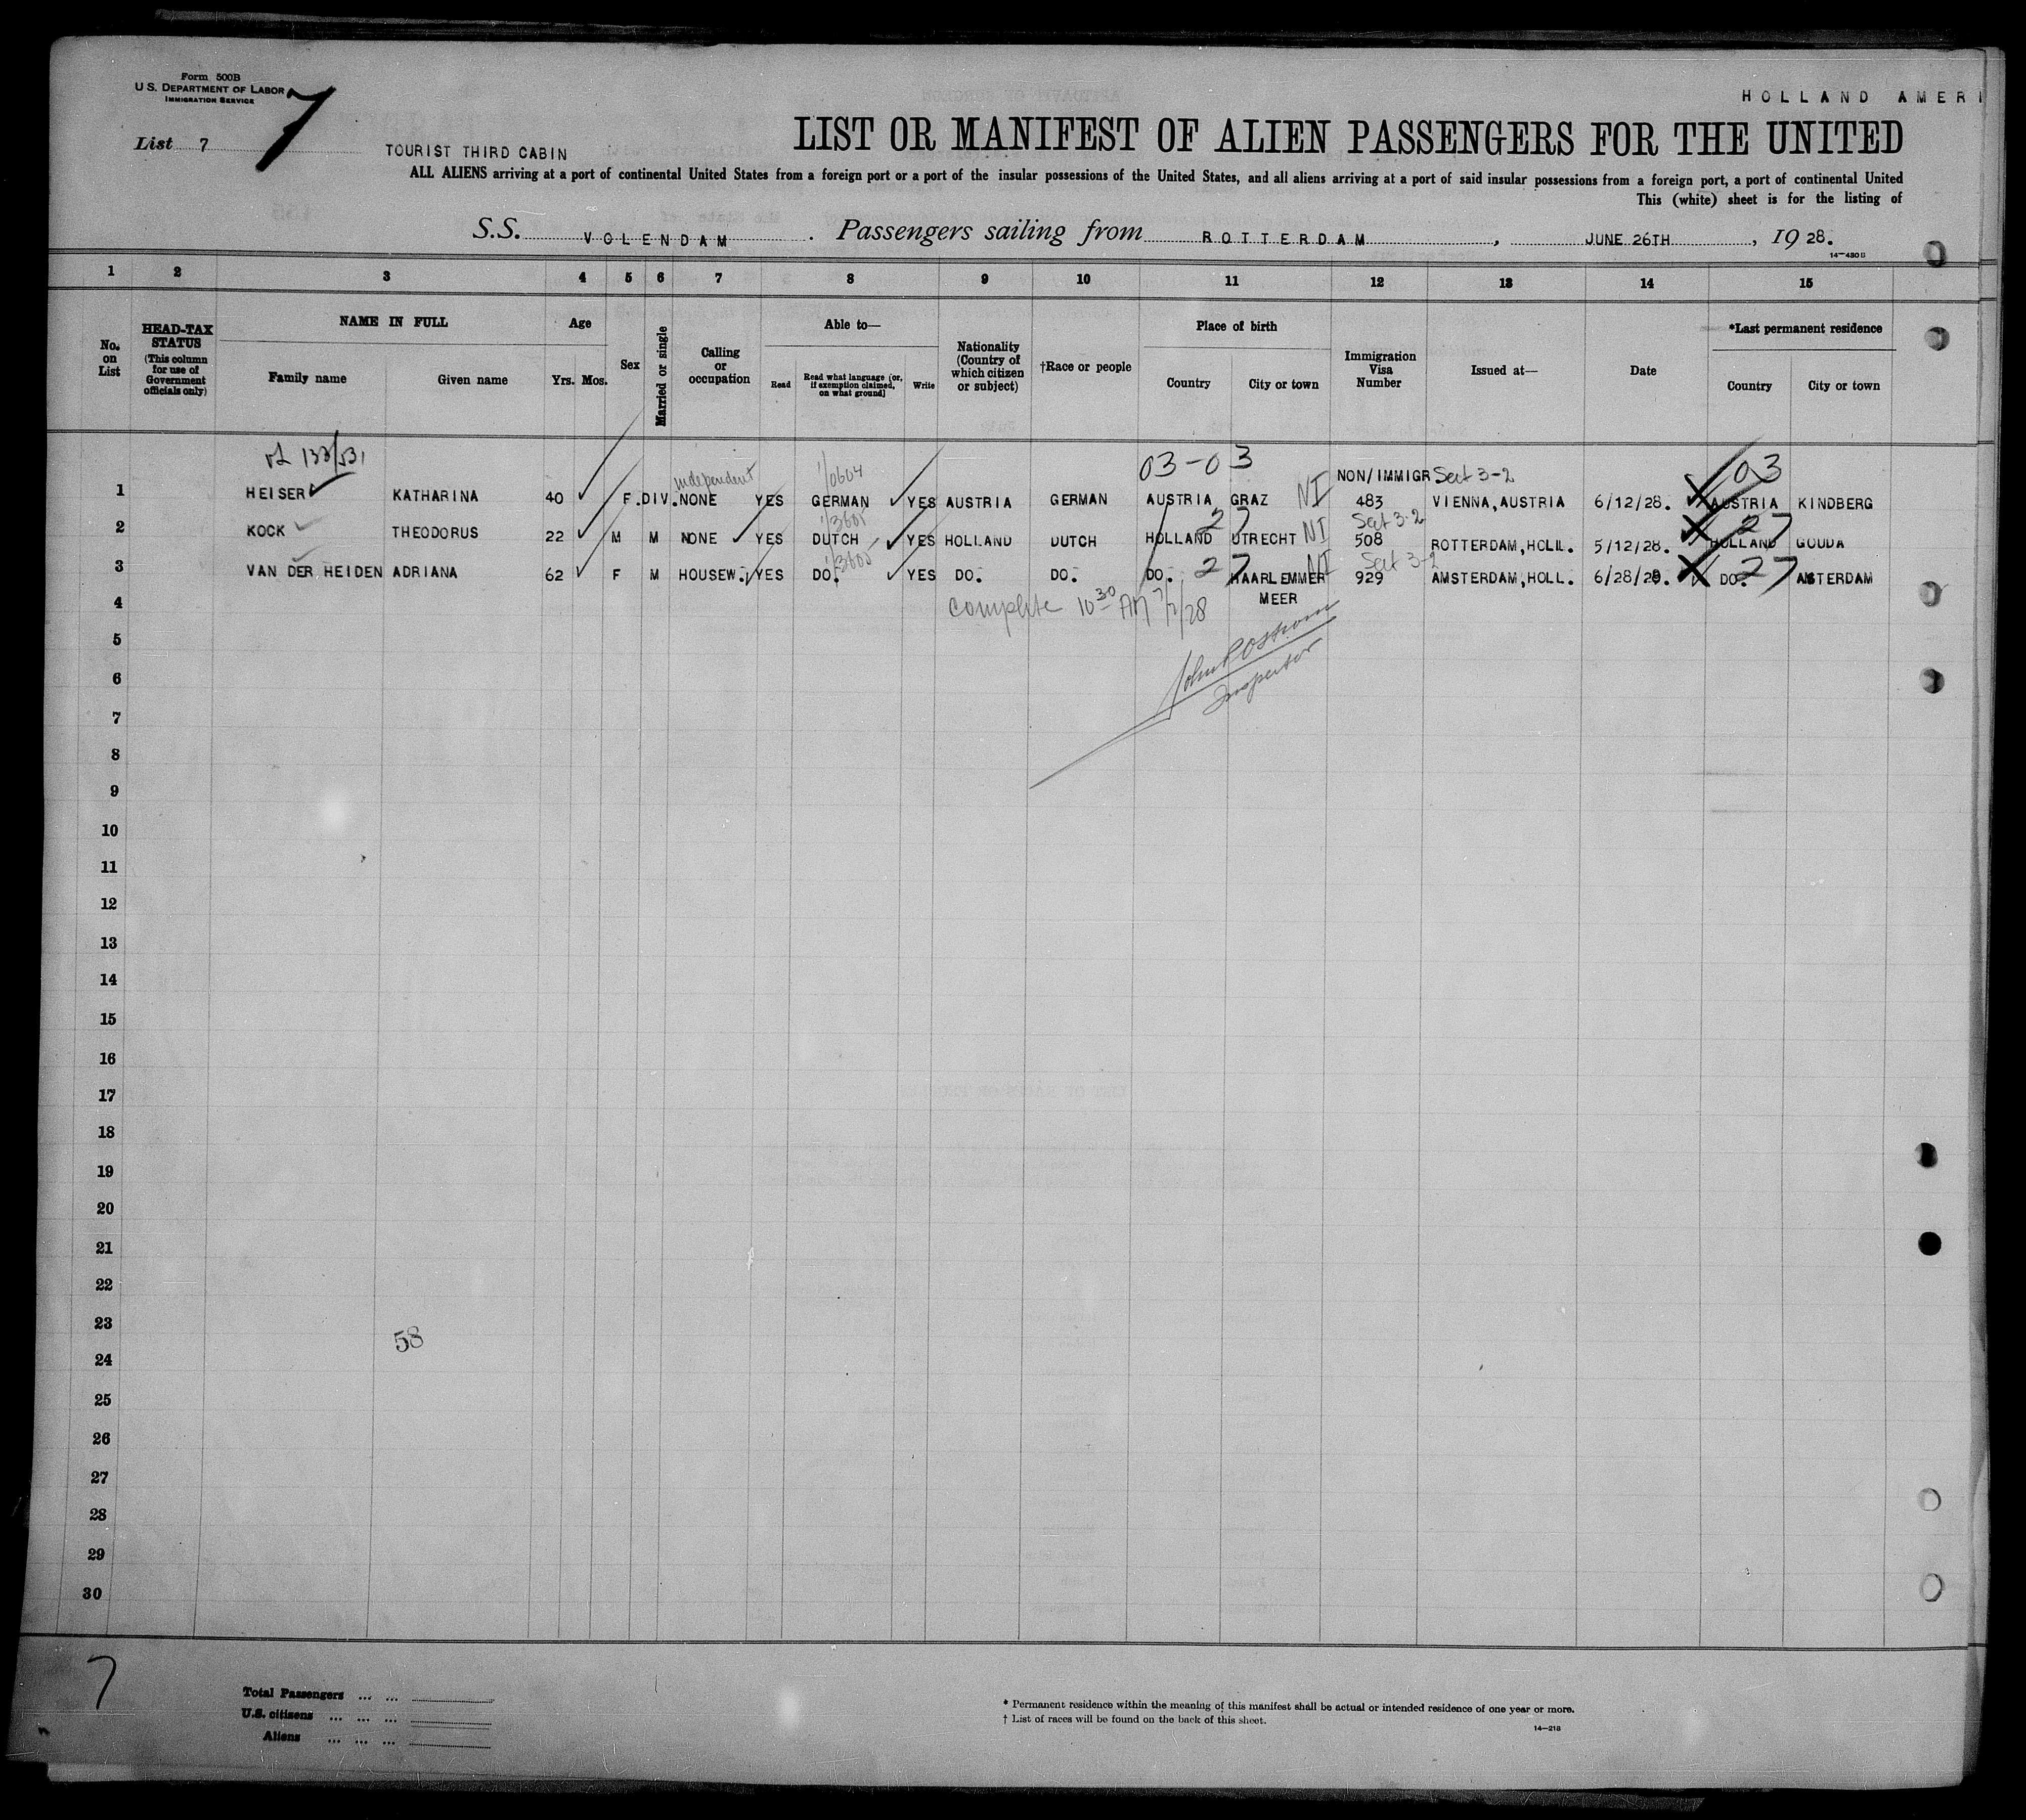 Form 500B
U.S. DEPARTMENT OF LABOR
IMMIGRATION SERVICE
7
HOLLAND AMERI
List 7
TOURIST THIRD CABIN
LIST OR MANIFEST OF ALIEN PASSENGERS FOR THE UNITED
ALL ALIENS arriving at a port of continental United States from a foreign port or a port of the insular possessions of the United States, and all aliens arriving at a port of said insular possessions from a foreign port, a port of continental United
This (white) sheet is for the listing of
S.S. VOLENDAM. Passengers sailing from ROTTERDAM, JUNE 26TH, 1928.
14-430B
1 2 3 4 5 6 7 8 9 10 11 12 13 14 15
No. on List
HEAD-TAX STATUS
(This column for use of Government officials only)
NAME IN FULL
Family name Given name
Age
Yrs. Mos.
Sex
Married or single
Calling or occupation
Able to—
Read
Read what language (or, if exemption claimed, on what ground)
Write
Nationality (Country of which citizen or subject)
†Race or people
Place of birth
Country City or town
Immigration Visa Number
Issued at—
Date
*Last permanent residence
Country City or town
independent 1/0604 03-03 NON/IMMIGR Sect 3-2 03
1 HEISER KATHARINA 40 F. DIV. NONE YES GERMAN YES AUSTRIA GERMAN AUSTRIA GRAZ NI 483 VIENNA, AUSTRIA 6/12/28. AUSTRIA KINDBERG
1/3605 27 Sect 3-2 27
2 KOCK THEODORUS 22 M M NONE YES DUTCH YES HOLLAND DUTCH HOLLAND UTRECHT NI 508 ROTTERDAM, HOLL. 5/12/28. HOLLAND GOUDA
1/3605 27 NI Sect 3-2 27
3 VAN DER HEIDEN ADRIANA 62 F M HOUSEW. YES DO. YES DO. DO. DO. HAARLEMMER 929 AMSTERDAM, HOLL. 6/28/28. DO. AMSTERDAM
MEER
4 Complete 10 30 AM 7/7/28
5
Inspector
6
7
8
9
10
11
12
13
14
15
16
17
18
19
20
21
22
23
58
24
25
26
27
28
29
30
7
Total Passengers ... ...
U.S. citizens ... ... ...
Aliens ... ... ...
* Permanent residence within the meaning of this manifest shall be actual or intended residence of one year or more.
† List of races will be found on the back of this sheet.
14-218